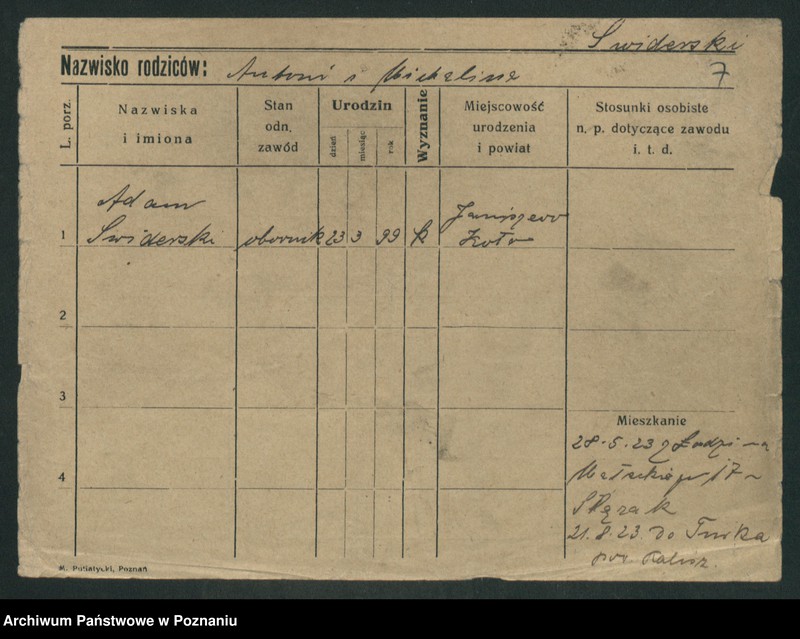 Swiderski
Nazwisko rodziców: Antoni i Michalina
7
L. porz.
Nazwiska
i imiona
Stan
odn.
zawód
Urodzin
dzień
miesiąc
rok
Wyznanie
Miejscowość
urodzenia
i powiat
Stosunki osobiste
n. p. dotyczące zawodu
i. t. d.
Adam
1 Swiderski obornik 23 3 99 k
Janiszewo
Koło
2
3
4
Mieszkanie
28.5.23 z Łodzi
17
21.8.23 do Turka
pow. Kalisz.
M. Putiatycki, Poznań
Archiwum Państwowe w Poznaniu